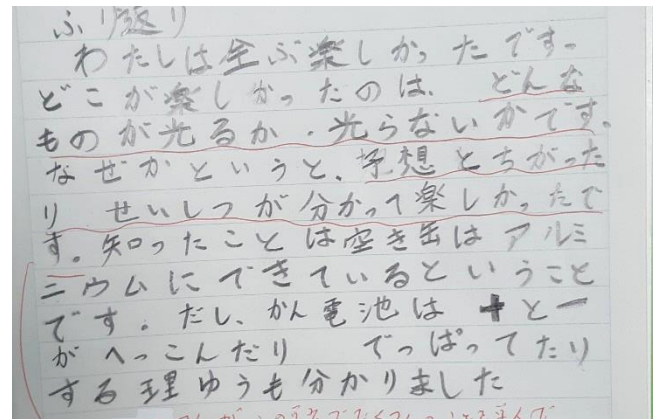 ふり返り
わたしは全ぶ楽しかったです。
どこが楽しかったのは、どんな
ものが光るか・光らないかです。
なぜかというと、予想とちがった
り せいしつが分かって楽しかったで
す。知ったことは空き缶はアルミ
ニウムにできているということ
です。だし、かん電池は+と-
がへっこんだり でっぱってたり
する理ゆうも分かりました